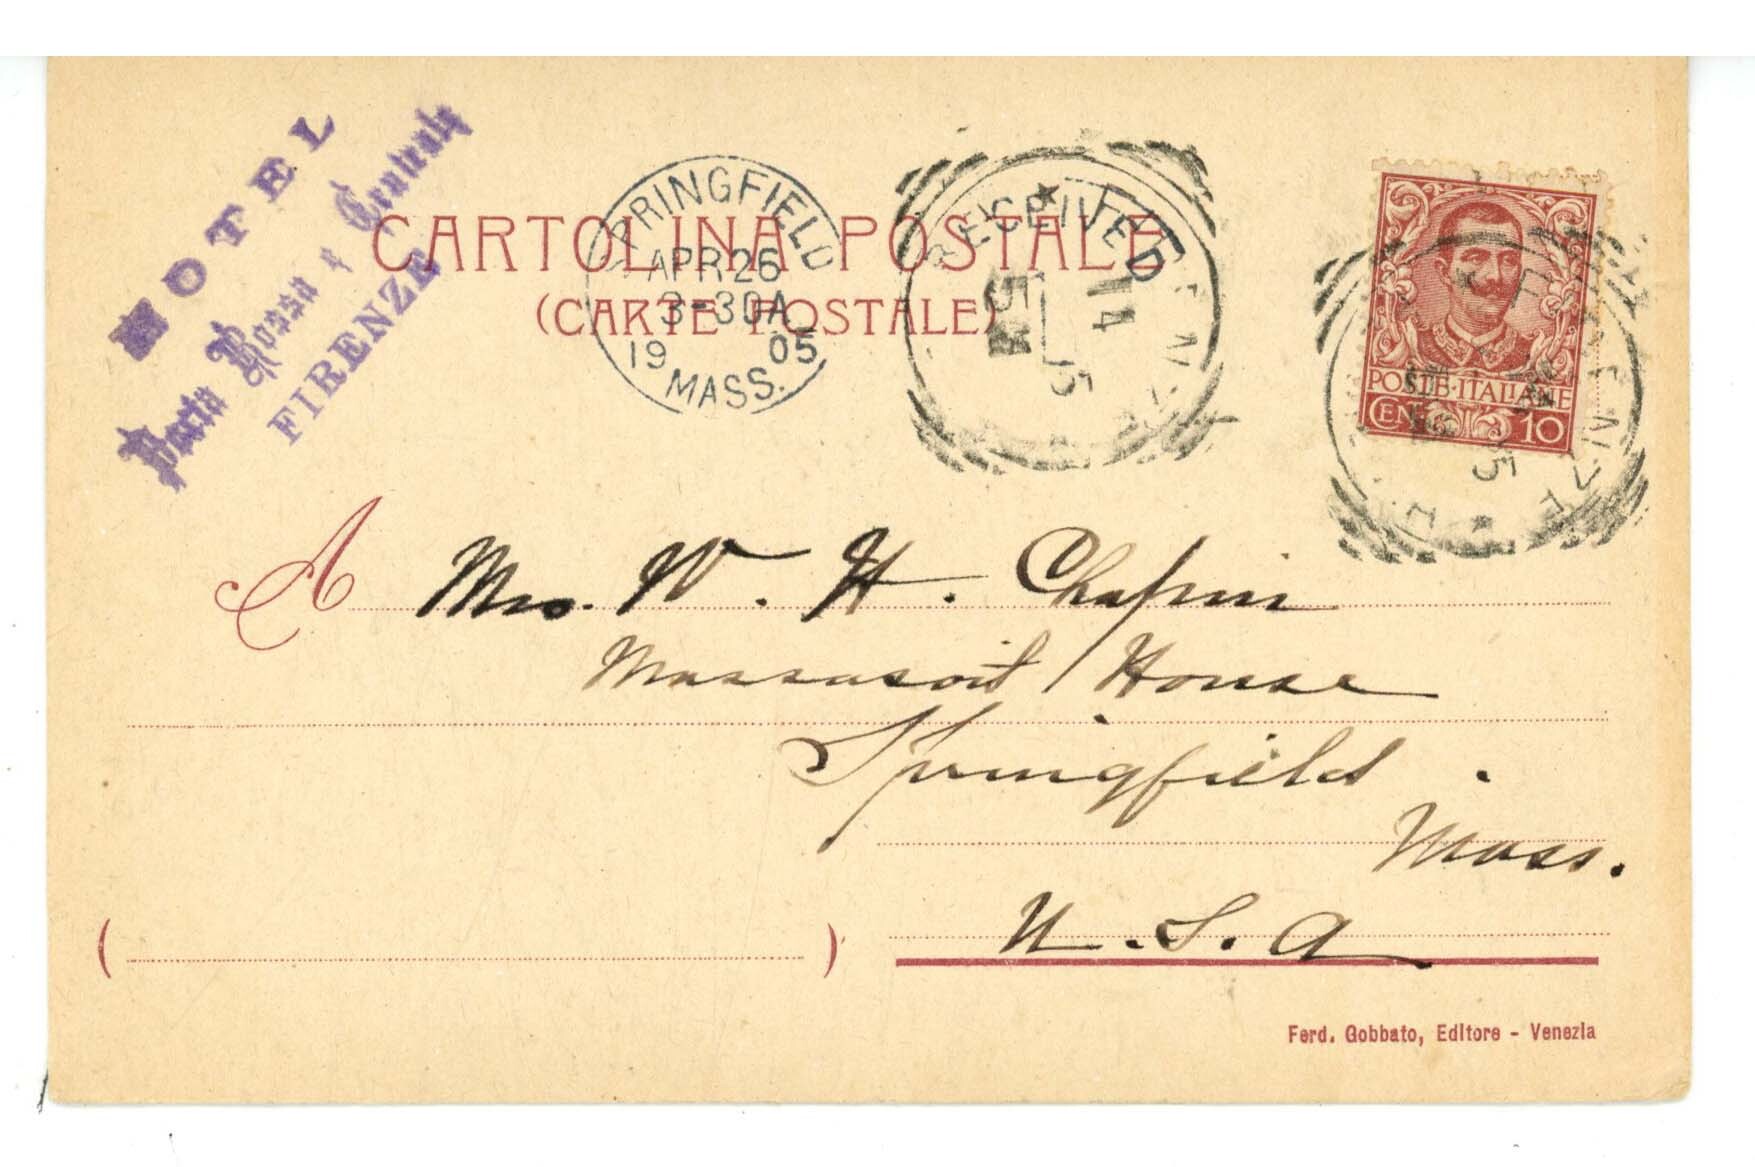 HOTEL
Porta Rossa & Centrale
FIRENZE
CARTOLINA POSTALE
(CARTE POSTALE)
SPRINGFIELD
APR 26
3-30A
1905
MASS.
RECEIVED
FIRENZE
14
5
POSTE·ITALIANE
CEN. 10
FIRENZE
A Mrs. W. H. Chapin
Massasoit House
Springfield.
Mass.
U.S.A
( )
Ferd. Gobbato, Editore - Venezia